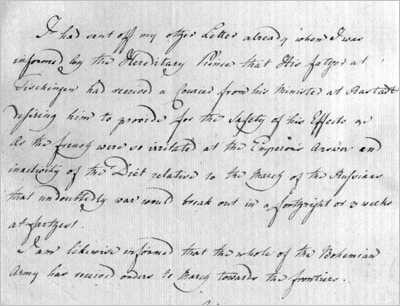 I had sent off my other Letter already when I was
informed by the Hereditary Prince that His father at
had received a Courier from his Minister at Rastadt
desiring him to provide for the Safety of his Effects
As the french were so irritated at the Emperors and
inactivity of the Diet relative to the March of the Russians
that undoubtedly war would break out in a fortnight or 3 weeks
at farthest.
I am likewise informed that the whole of the Bohemian
Army has received orders to March towards the frontiers.